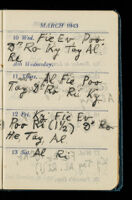 MARCH 1943
10 Wed. Fie Ev. Poo
Dn Ro Ky Tay Al.
Ri
Ash Wednesday.
11 Thur. Al Fie Poo
Tay Dn Ro Ri Ky
12 Fri. Ky Fie Ev
Poo Ri (1½) Dn Ro
He Tay Al
13 Sat. Al Ri